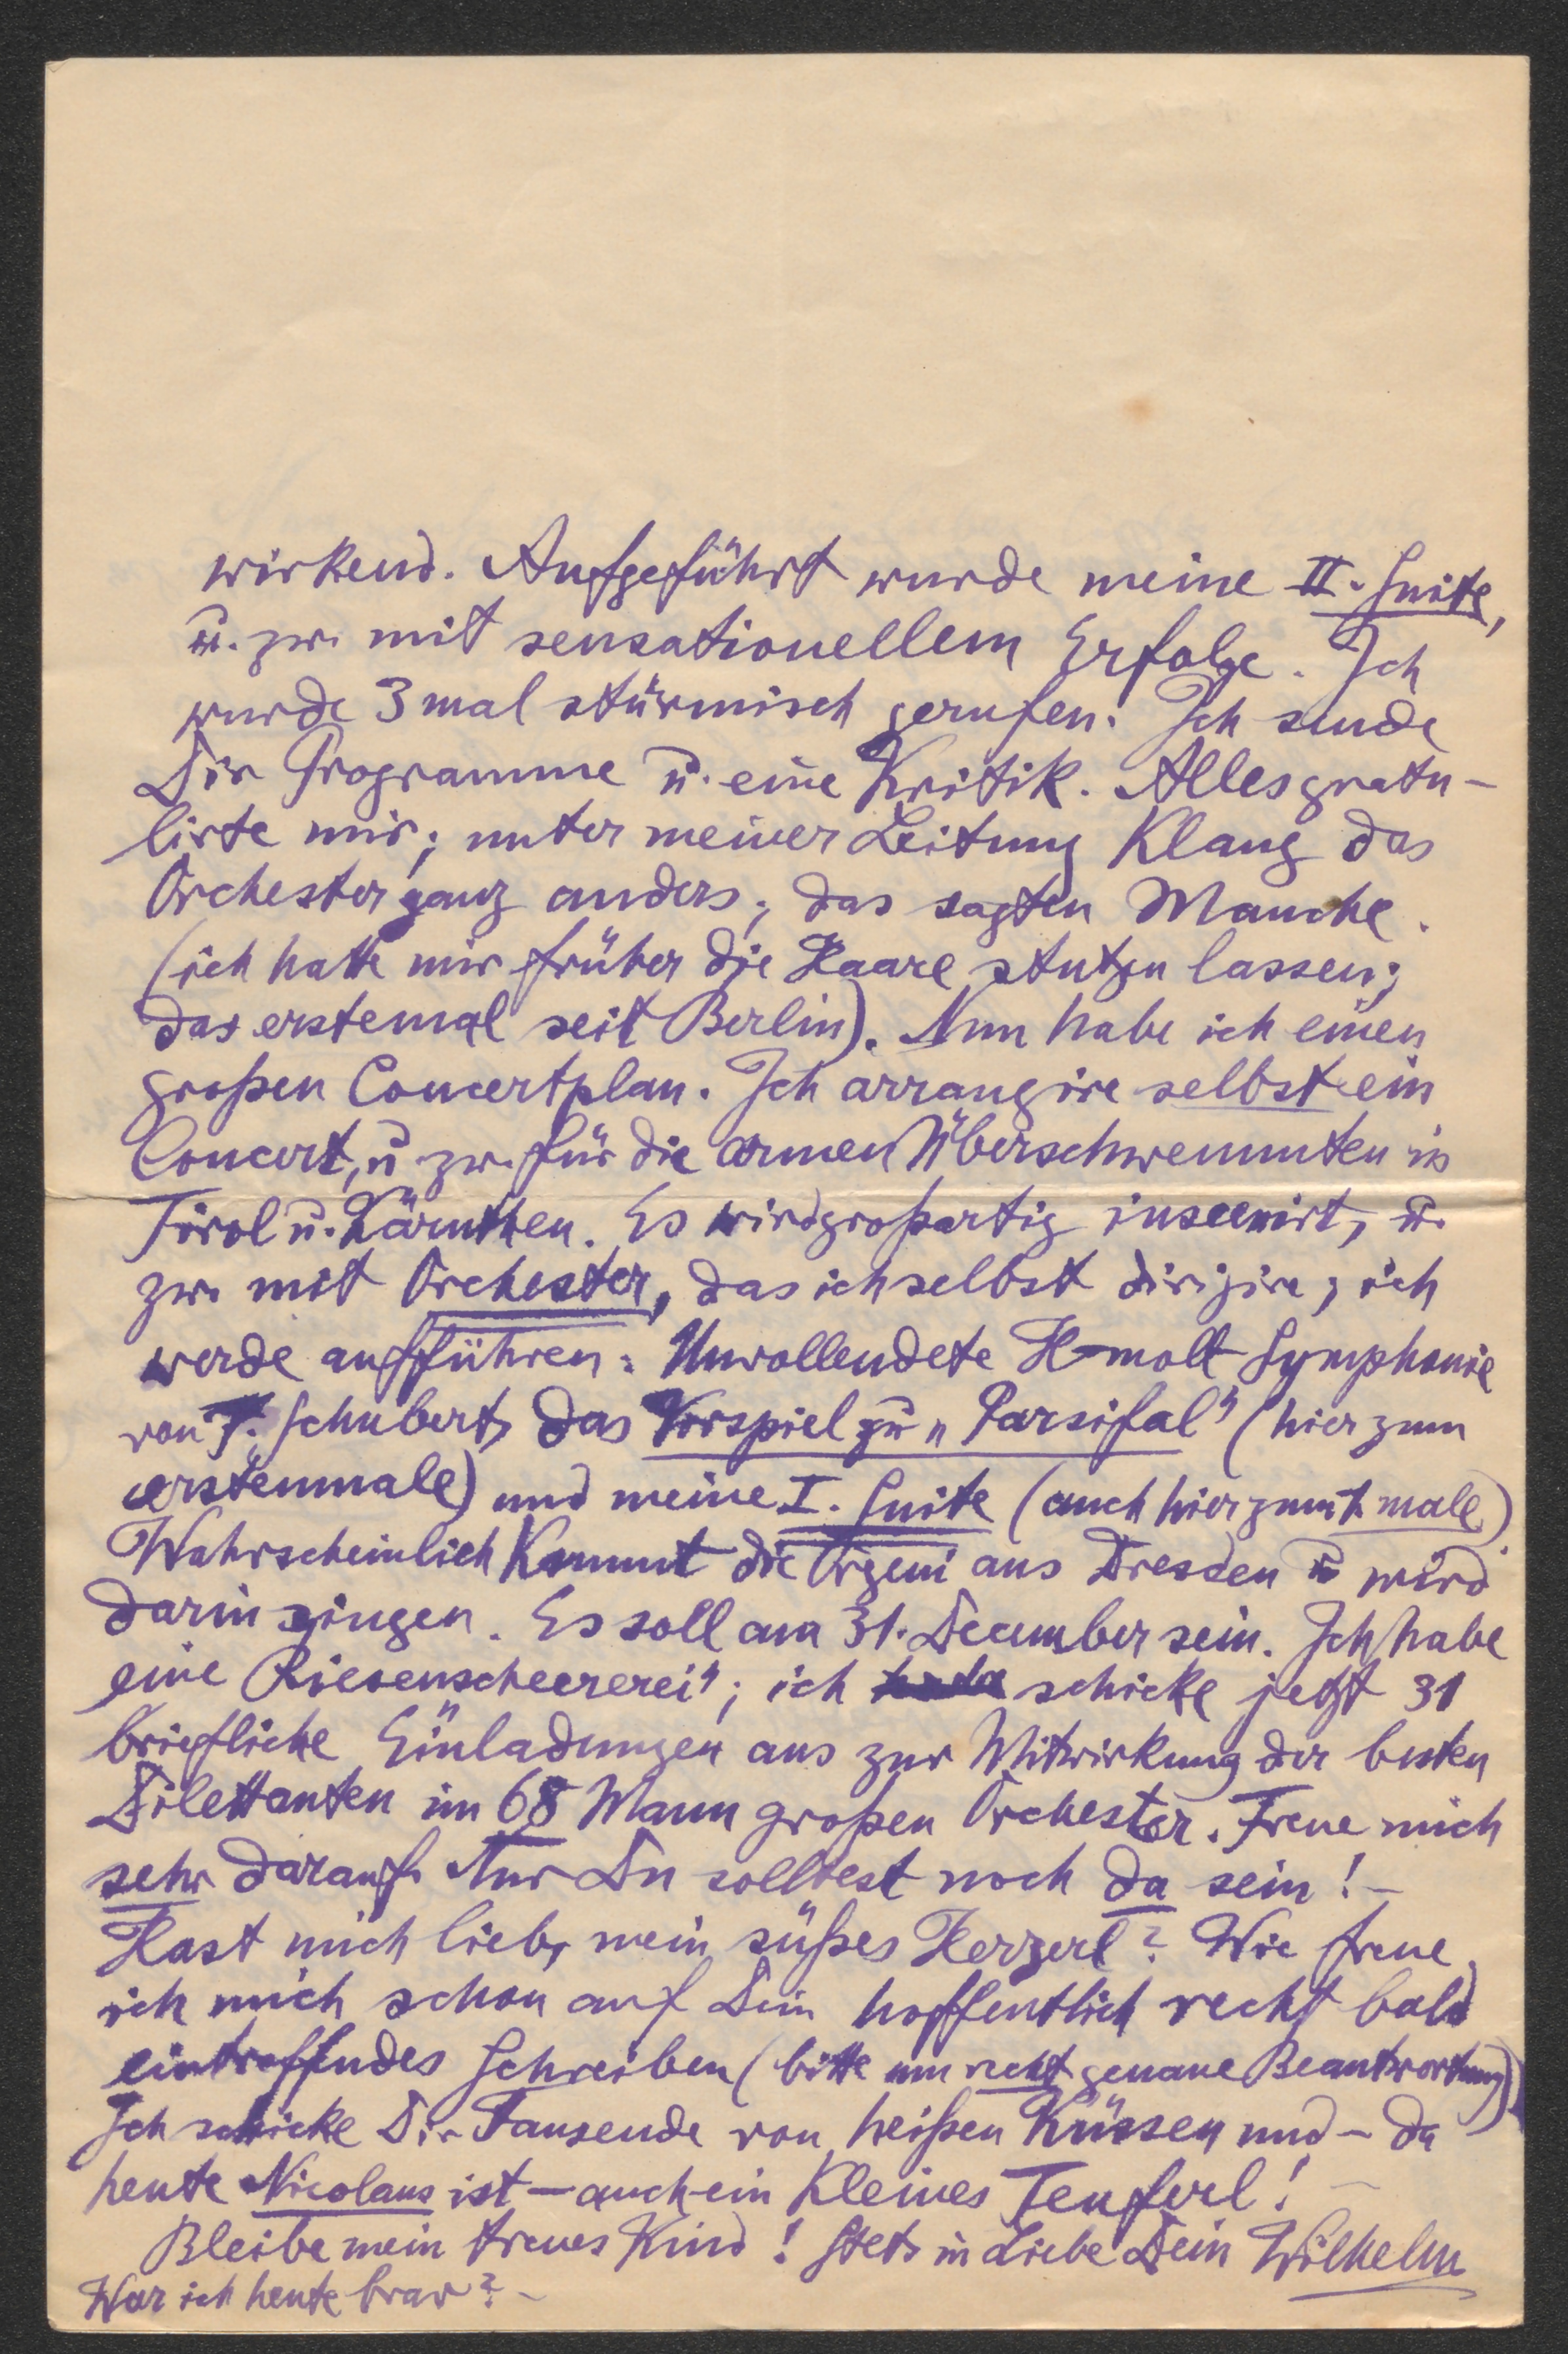 wirkend. Aufgeführt wurde meine II. Suite,
u. zw. mit sensationellem Erfolge. Ich
wurde 3 mal stürmisch gerufen. Ich sende
Dir Programme u. eine Kritik. Alles gratu-
lirte mir; unter meiner Leitung klang das
Orchester ganz anders; das sagten Manche.
(ich hatte mir früher die Haare stutzen lassen;
das erstemal seit Berlin). Nun habe ich einen
großen Concertplan. Ich arrangire selbst ein
Concert, u zw. für die armen Überschwemmten in
Tirol u. Kärnthen. Es wird großartig inscenirt, u.
zw. mit Orchester, das ich selbst dirigire; ich
werde aufführen: Unvollendete H-moll Symphonie
von F. Schubert, das Vorspiel zu „Parsifal" (hier zum
erstenmale) und meine I. Suite (auch hier zum 1. male)
Wahrscheinlich kommt die Orgeni aus Dresden u wird
darin singen. Es soll am 31. December sein. Ich habe
eine Riesenscheererei"; ich schicke jetzt 31
briefliche Einladungen aus zur Mitwirkung der besten
Dilettanten im 68 Mann großen Orchester. Freue mich
sehr darauf. Nur Du solltest noch da sein! –
Hast mich lieb, mein süßes Herzerl? Wie freue
ich mich schon auf Dein hoffentlich recht bald
eintreffendes Schreiben (bitte um recht genaue Beantwortung)
Ich schicke Dir Tausende von heißen Küssen und – da
heute Nicolaus ist – auch ein kleines Teuferl! –
Bleibe mein treues Kind! Stets in Liebe Dein Wilhelm
War ich heute brav? –